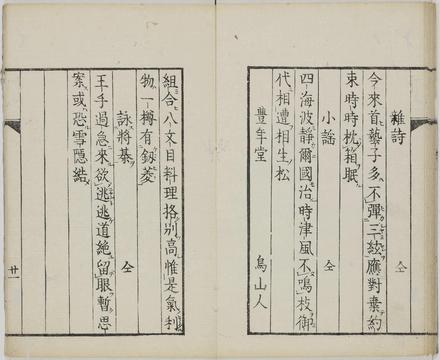 雜詩　仝
今來首藝子多不彈三絃應對棄約
束時時枕箱眠
小謠　仝
四海波靜爾國治時津風不鳴枝御
代相遭相生松
豊年堂　鳥山人
組合八文目料理格別高惟是氣利
物一樽有釼菱
詠將棊　仝
王手過急來欲逃逃道絶留眼暫思
案或恐雪隱結
廿一